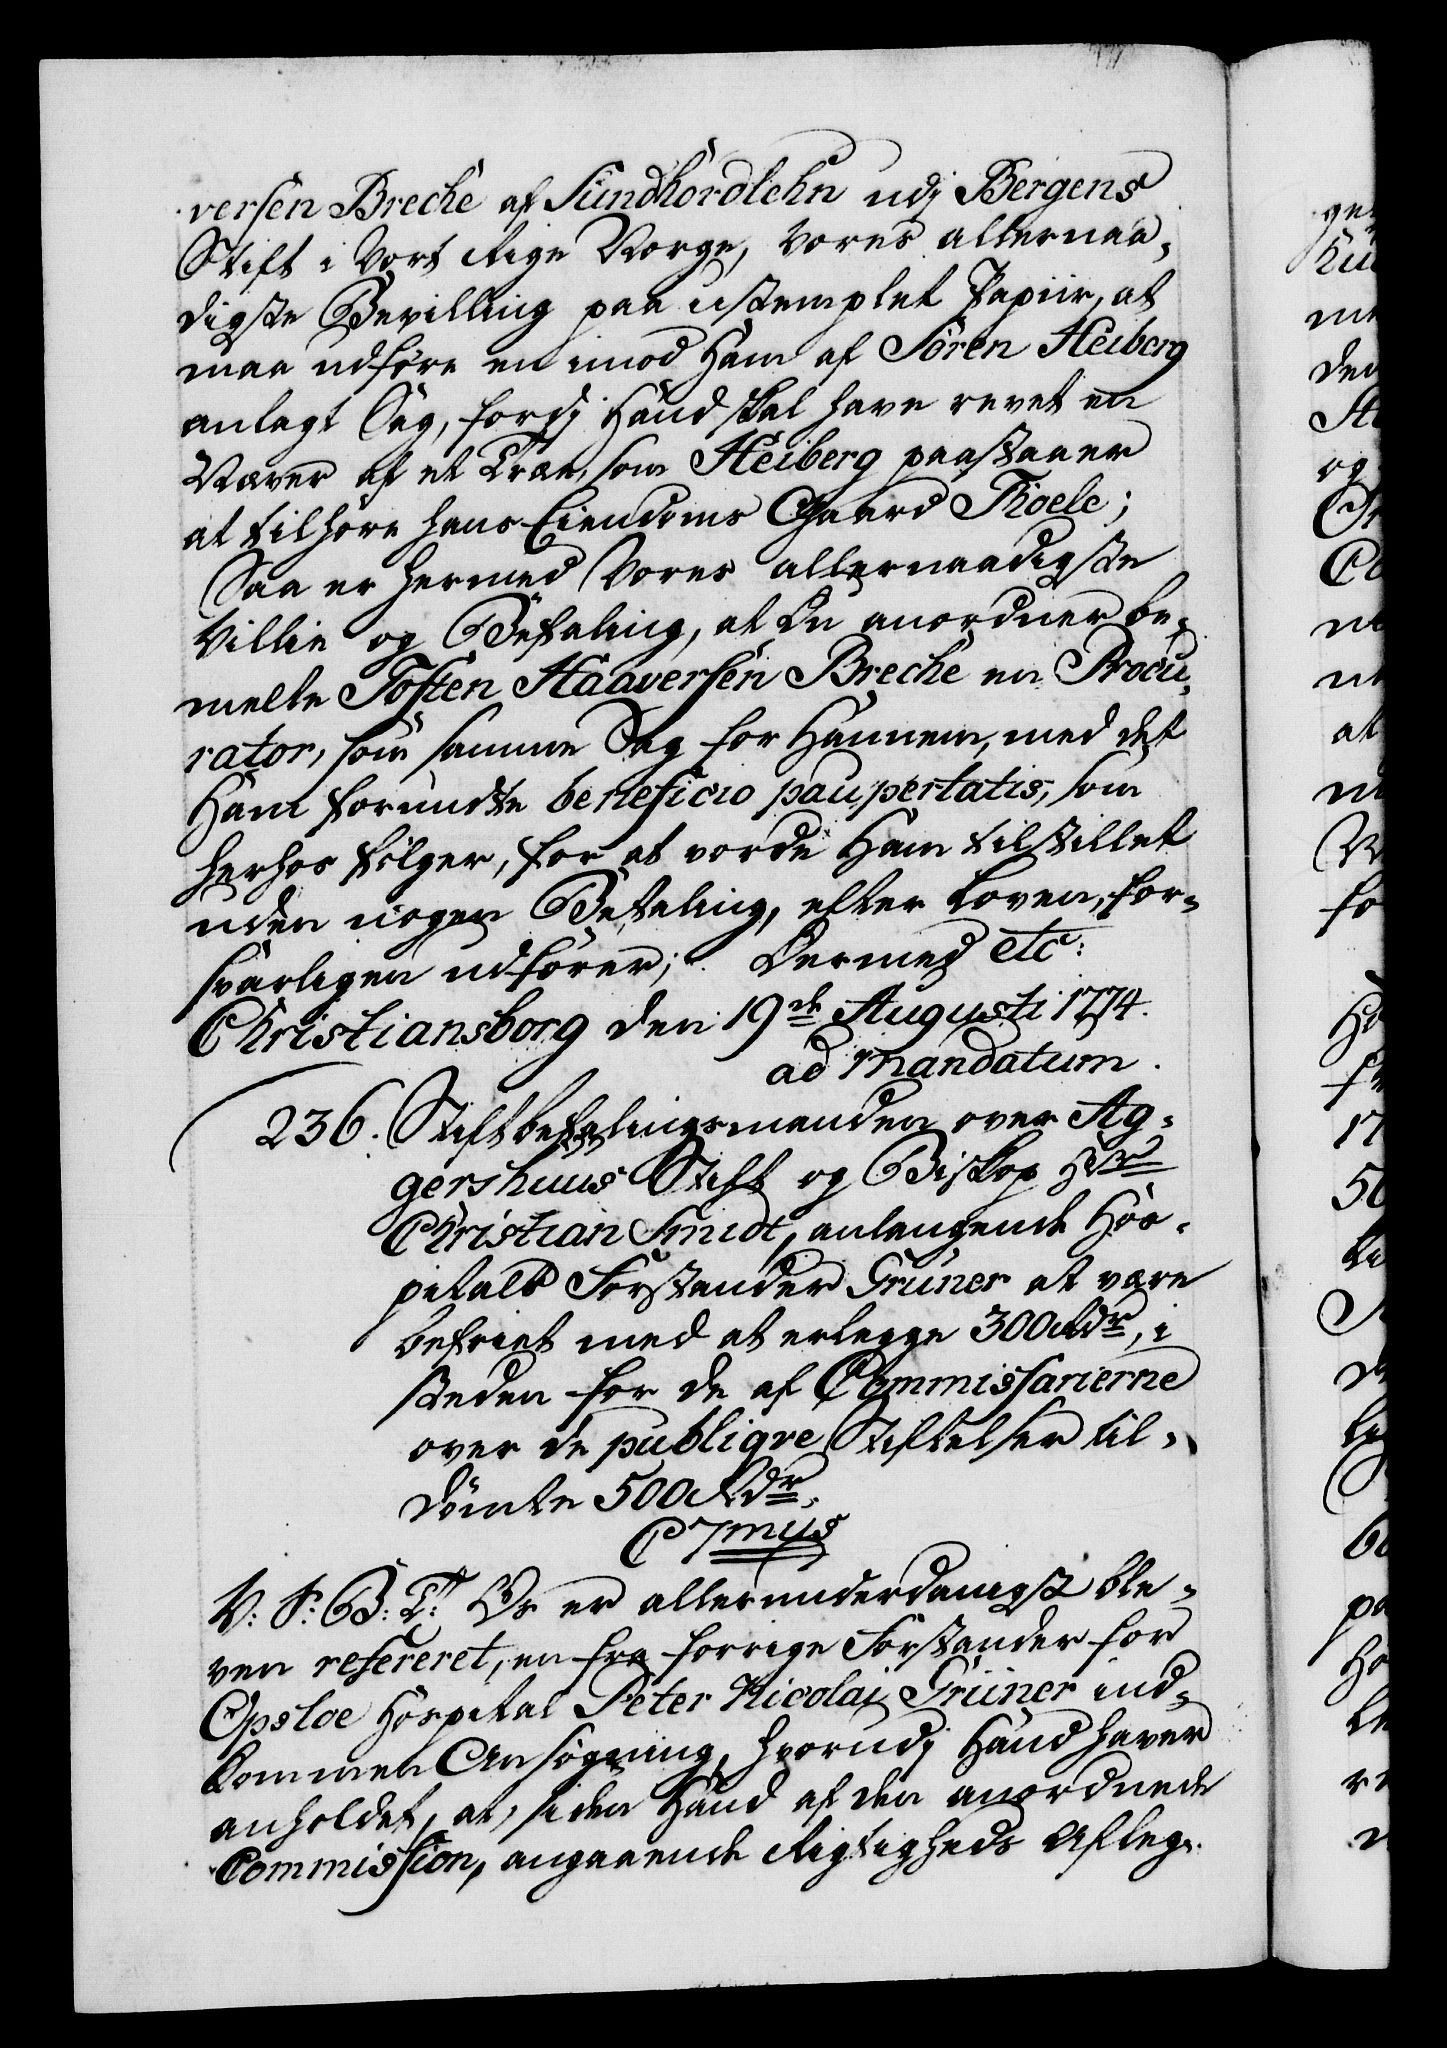 versen Breche af Sundhordlehn udj Bergens
Stift i Vort Rige Norge, Vores allernaa-
digste Bevilling paa ustemplet Papiir, at
maa udføre en imod Ham af Sören Heiberg
anlagt Sag, fordj Hand skal have revet en
Næver af et Træe, som Heiberg paastaaer
at tilhøre hans Eiendoms Gaard Thoele;
Saa er hermed Vores allernaadigste
Villie og Befaling, at Du anordner be-
melte Tosten Haaversen Breche en Procu-
rator, som samme Sag for Hannem, med det
Ham forundte beneficio paupertatis, som
herhos følger, for at vorde Ham tilstillet
uden nogen Betaling, efter Loven, for-
svarligen udfører; Dermed etc:
Christiansborg den 19de Augusti 1774.
ad mandatum.
236. Stiftbefalingsmanden over Ag-
gershuus Stift og Biskop Hr
Christian Smidt, anlangende Hos-
pitals Forstander Grüner at være
befriet med at erlegge 300 Rdr, i
steden for de af Commissarierne
over de publiqve Stiftelser til-
dømte 500 Rdr.
C 7mus
V: S: G: T: Os er allerunderdanigst ble-
ven refereret, en fra forrige Forstander for
Opsloe Hospital Peter Nicolai Grüner ind-
kommen Ansøgning, hvorudj Hand haver
anholdet, at, siden Hand af den anordnede
Commission, angaaende Rigtigheds Afleg-